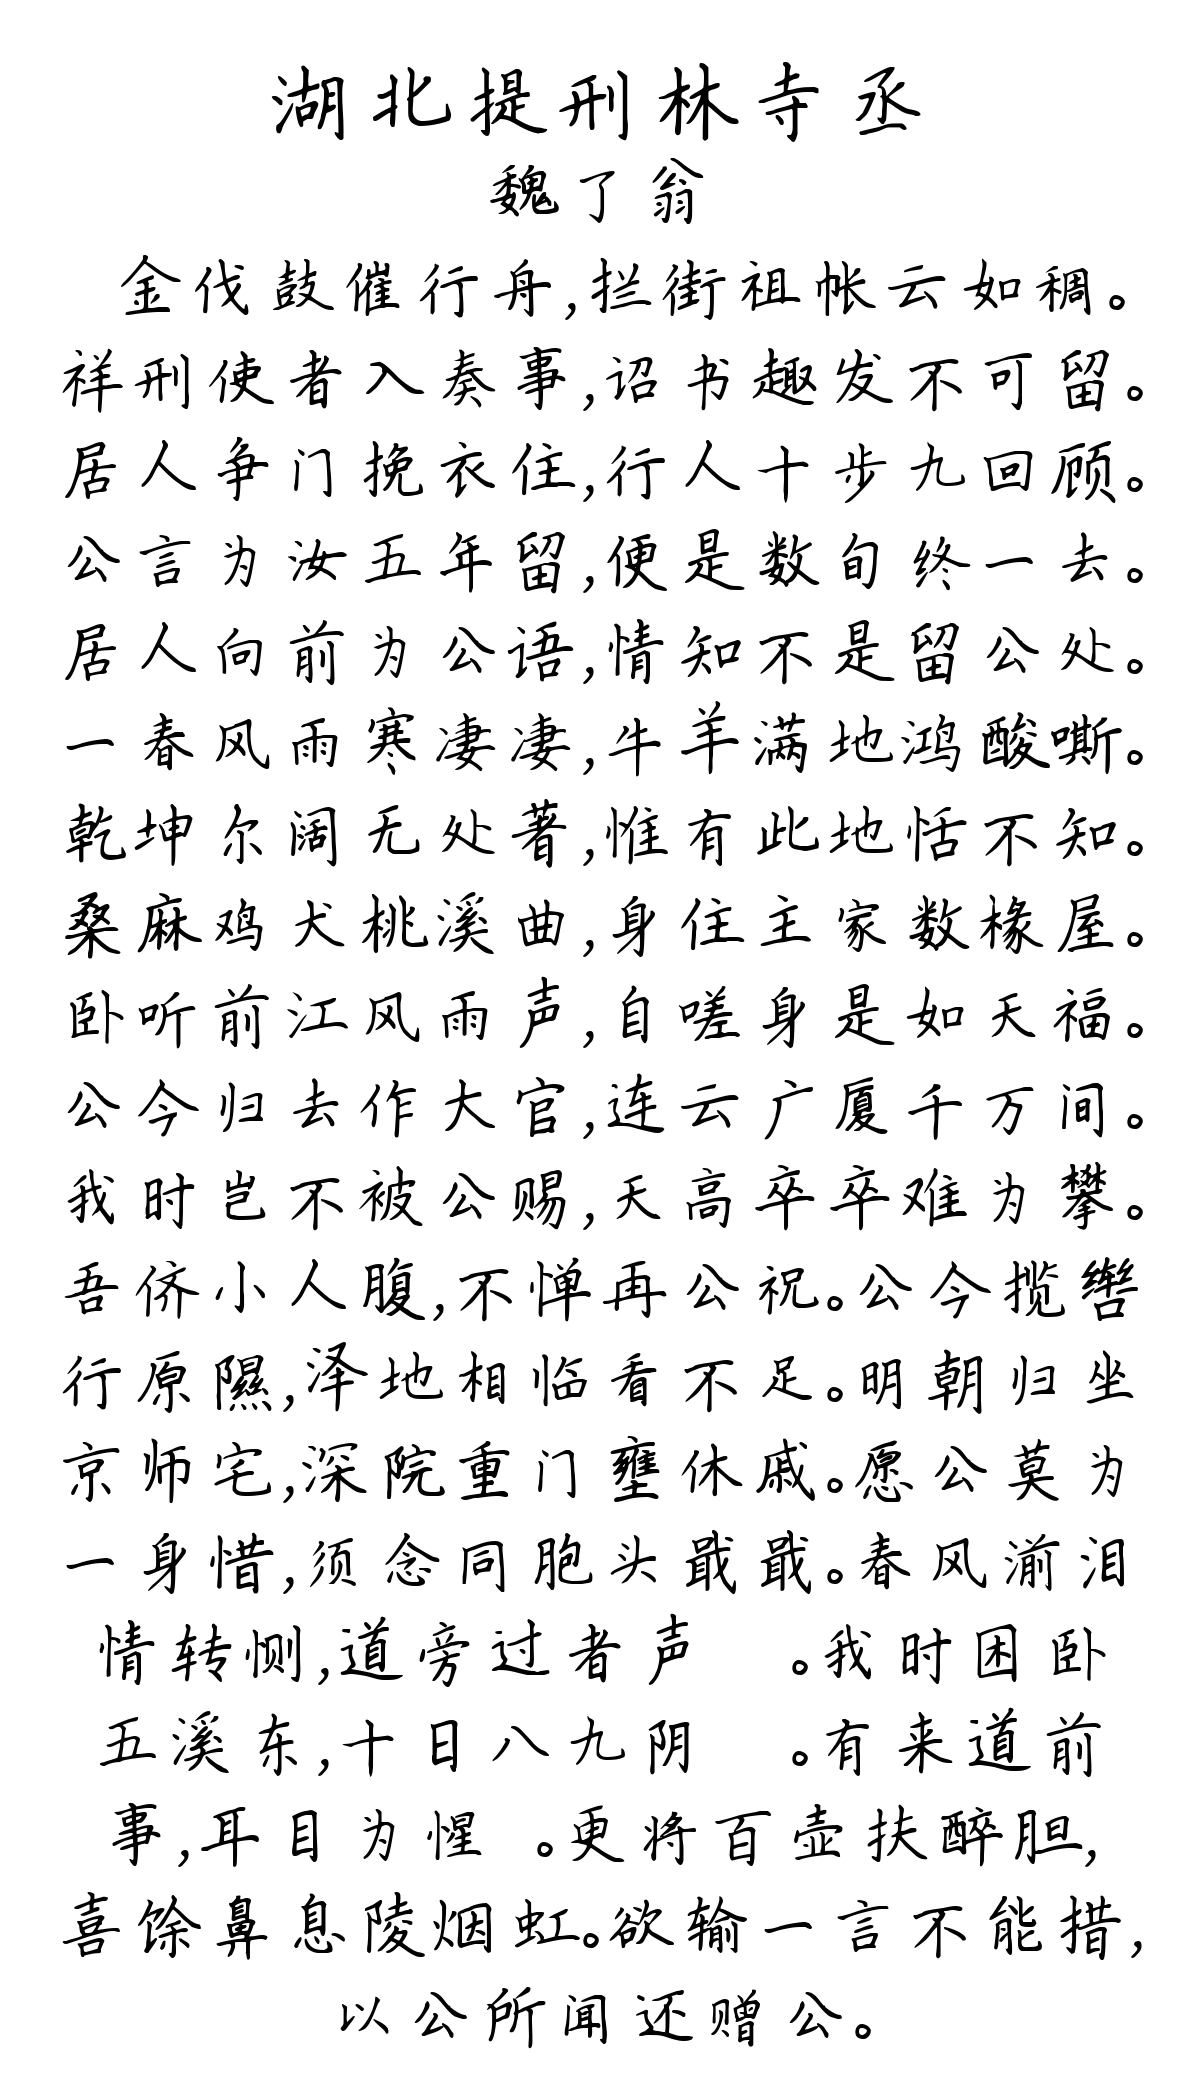 湖北提刑林寺丞
魏了翁
金伐鼓催行舟,拦街祖帐云如稠。
祥刑使者入奏事,诏书趣发不可留。
居人争门挽衣住,行人十步九回顾。
公言为汝五年留,便是数旬终一去。
居人向前为公语,情知不是留公处。
一春风雨寒凄凄,牛羊满地鸿酸嘶。
乾坤尔阔无处著,惟有此地恬不知。
桑麻鸡犬桃溪曲,身住主家数椽屋。
卧听前江风雨声,自嗟身是如天福。
公今归去作大官,连云广厦千万间。
我时岂不被公赐,天高卒卒难为攀。
吾侪小人腹,不惮再公祝。公今揽辔
行原隰,泽地相临看不足。明朝归坐
京师宅,深院重门壅休戚。愿公莫为
一身惜,须念同胞头戢戢。春风湔泪
情转恻,道旁过者声 。我时困卧
五溪东,十日八九阴 。有来道前
事,耳目为惺 。更将百壶扶醉胆,
喜馀鼻息陵烟虹。欲输一言不能措,
以公所闻还赠公。